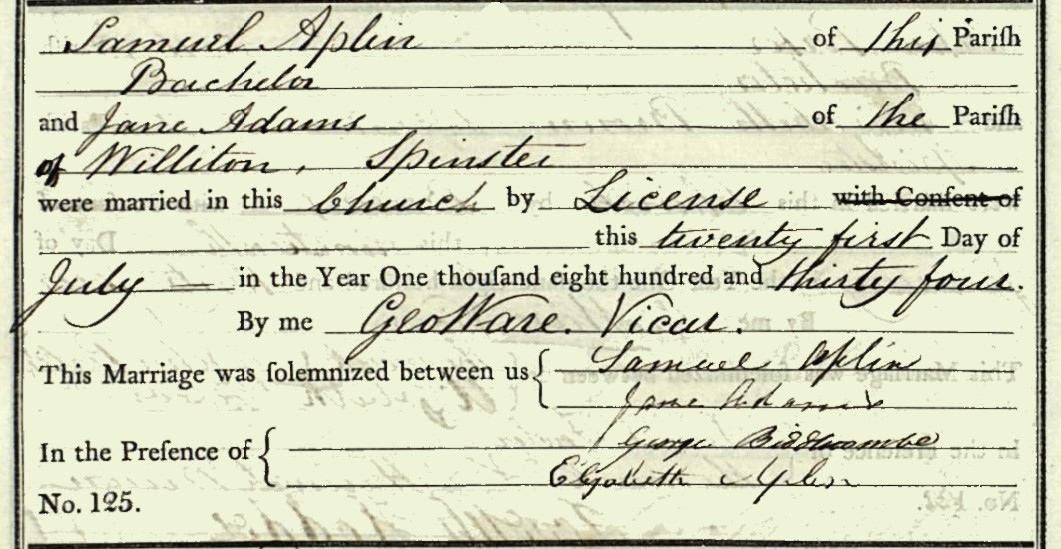 Samuel Aplin of this Pariſh
Bachelor
and Jane Adams of the Pariſh
of Williton, Spinster
were married in this Church by License with Conſent of
this twenty first Day of
July in the Year One thouſand eight hundred and thirty four.
By me Geo Ware. Vicar.
This Marriage was ſolemnized between us { Samuel Aplin
Jane Adams
In the Preſence of { George Biddlecombe
Elizabeth Aplin
No. 125.